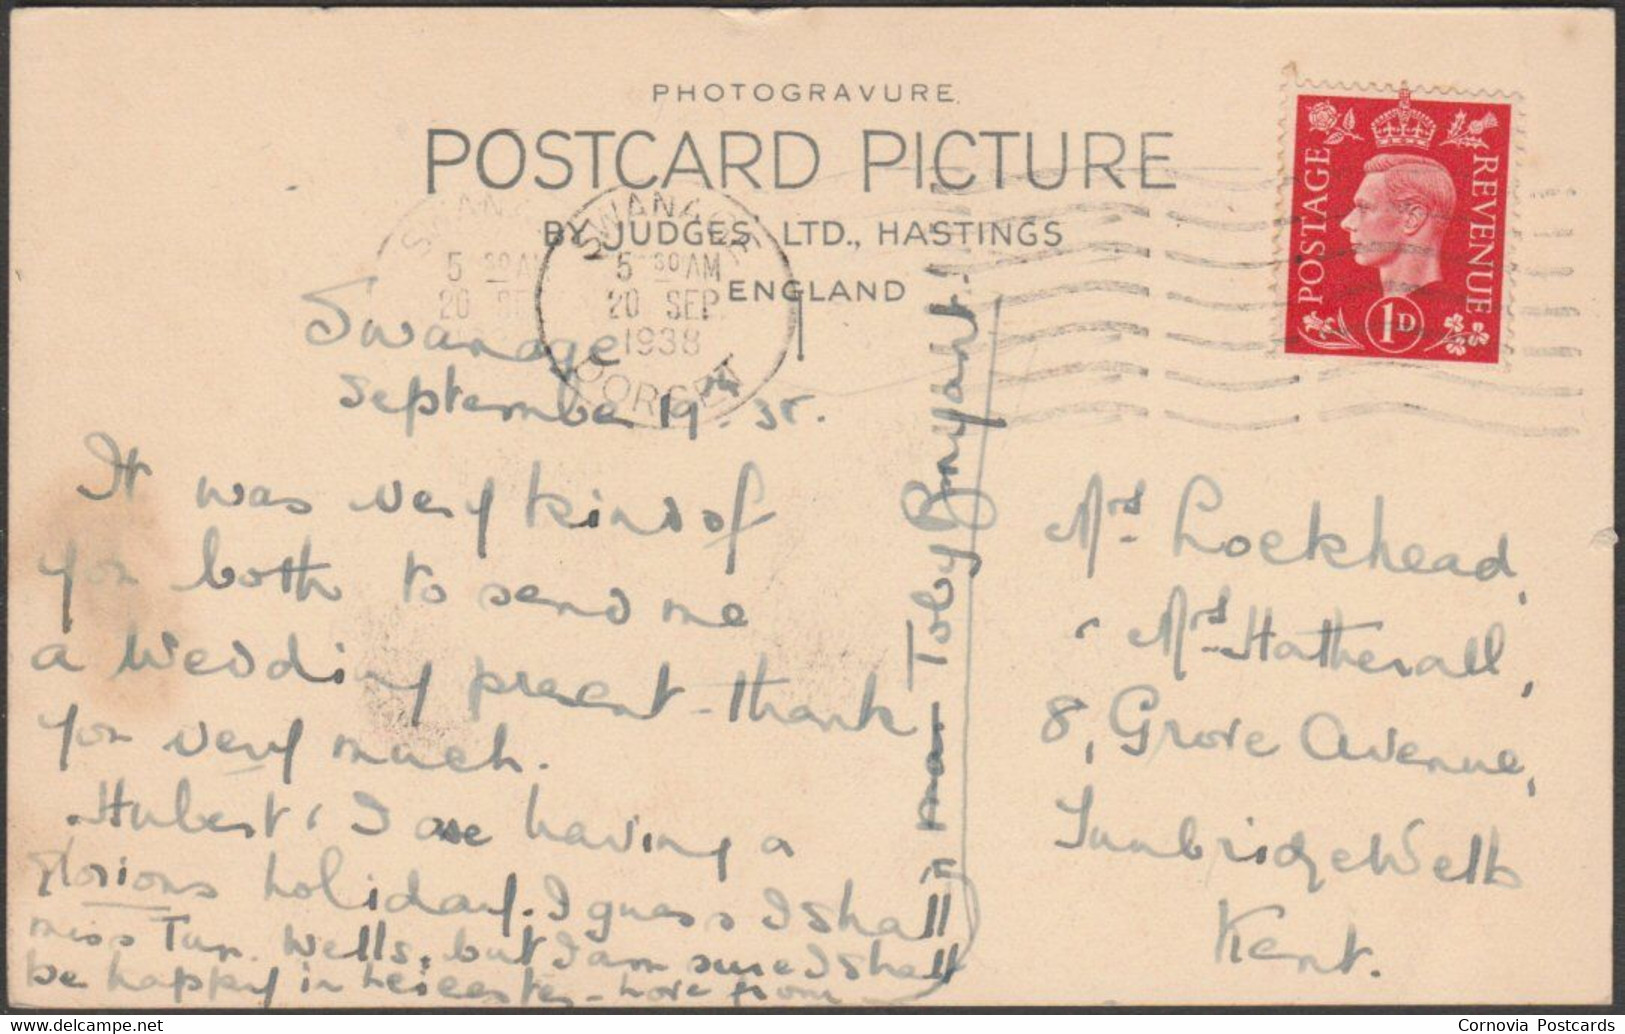 PHOTOGRAVURE
POSTCARD PICTURE
BY JUDGES' LTD., HASTINGS
ENGLAND
SWANAGE
5 30 AM
20 SEP
1938
DORSET
POSTAGE
REVENUE
1D
Swanage
September 19th. 38.
It was very kind of
you both to send me
a wedding present – thank
you very much.
Hubert & I are having a
glorious holiday. I guess I shall
miss Tun. Wells, but I am sure I shall
be happy in Leicester – love from
Toby Bunyard.
Mrs. Lockhead,
& Mrs. Hatherall,
8, Grove Avenue,
Tunbridge Wells
Kent.
Cornovia Postcards